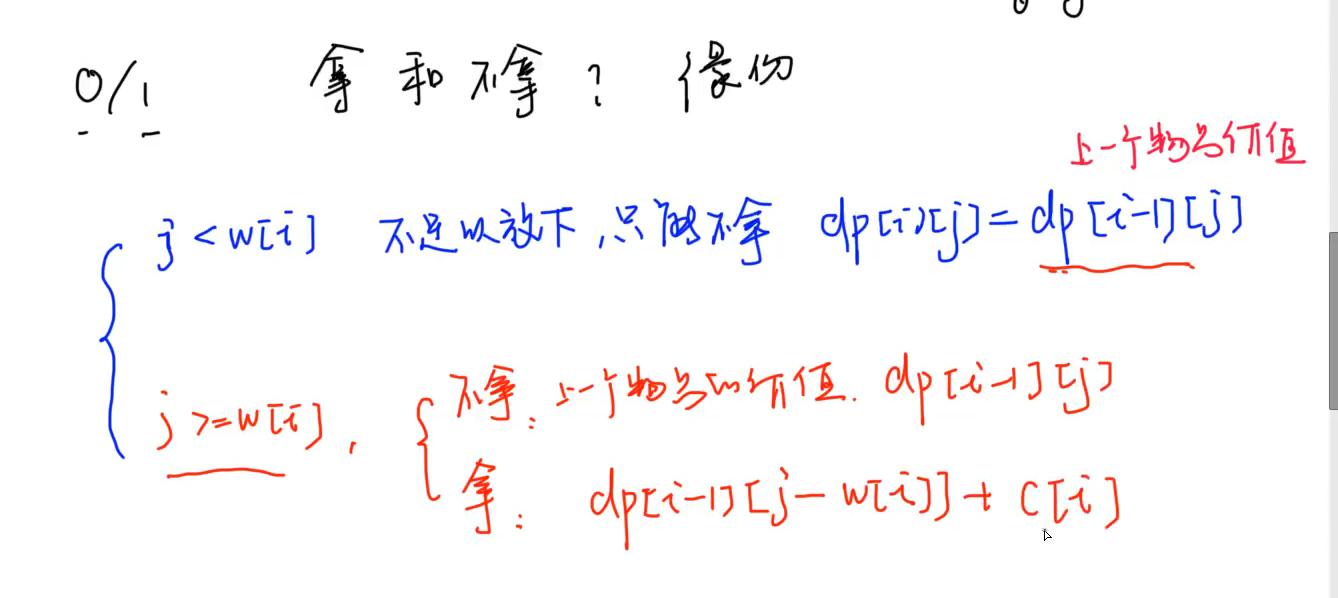 0/1 拿和不拿? 缘份
上一个物品价值
j < w[i] 不足以放下,只能不拿 dp[i][j] = dp[i-1][j]
j >= w[i], 不拿: 上一个物品的价值. dp[i-1][j]
拿: dp[i-1][j - w[i]] + c[i]